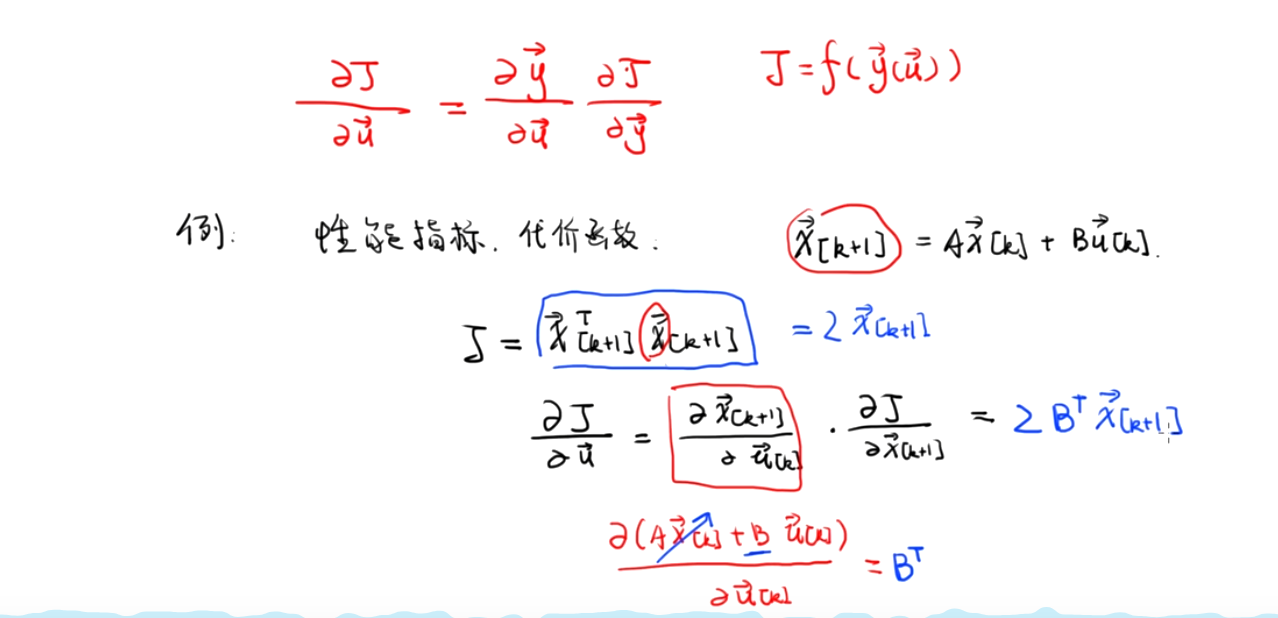 ∂J/∂u⃗ = ∂y⃗/∂u⃗ ∂J/∂y⃗   J = f(y⃗(u⃗))
例: 性能指标. 代价函数.   x⃗[k+1] = Ax⃗[k] + Bu⃗[k].
J = x⃗ᵀ[k+1] x⃗[k+1] = 2 x⃗[k+1]
∂J/∂u⃗ = ∂x⃗[k+1]/∂u⃗[k] · ∂J/∂x⃗[k+1] = 2 Bᵀ x⃗[k+1]
∂(Ax⃗[k] + B u⃗[k])/∂u⃗[k] = Bᵀ